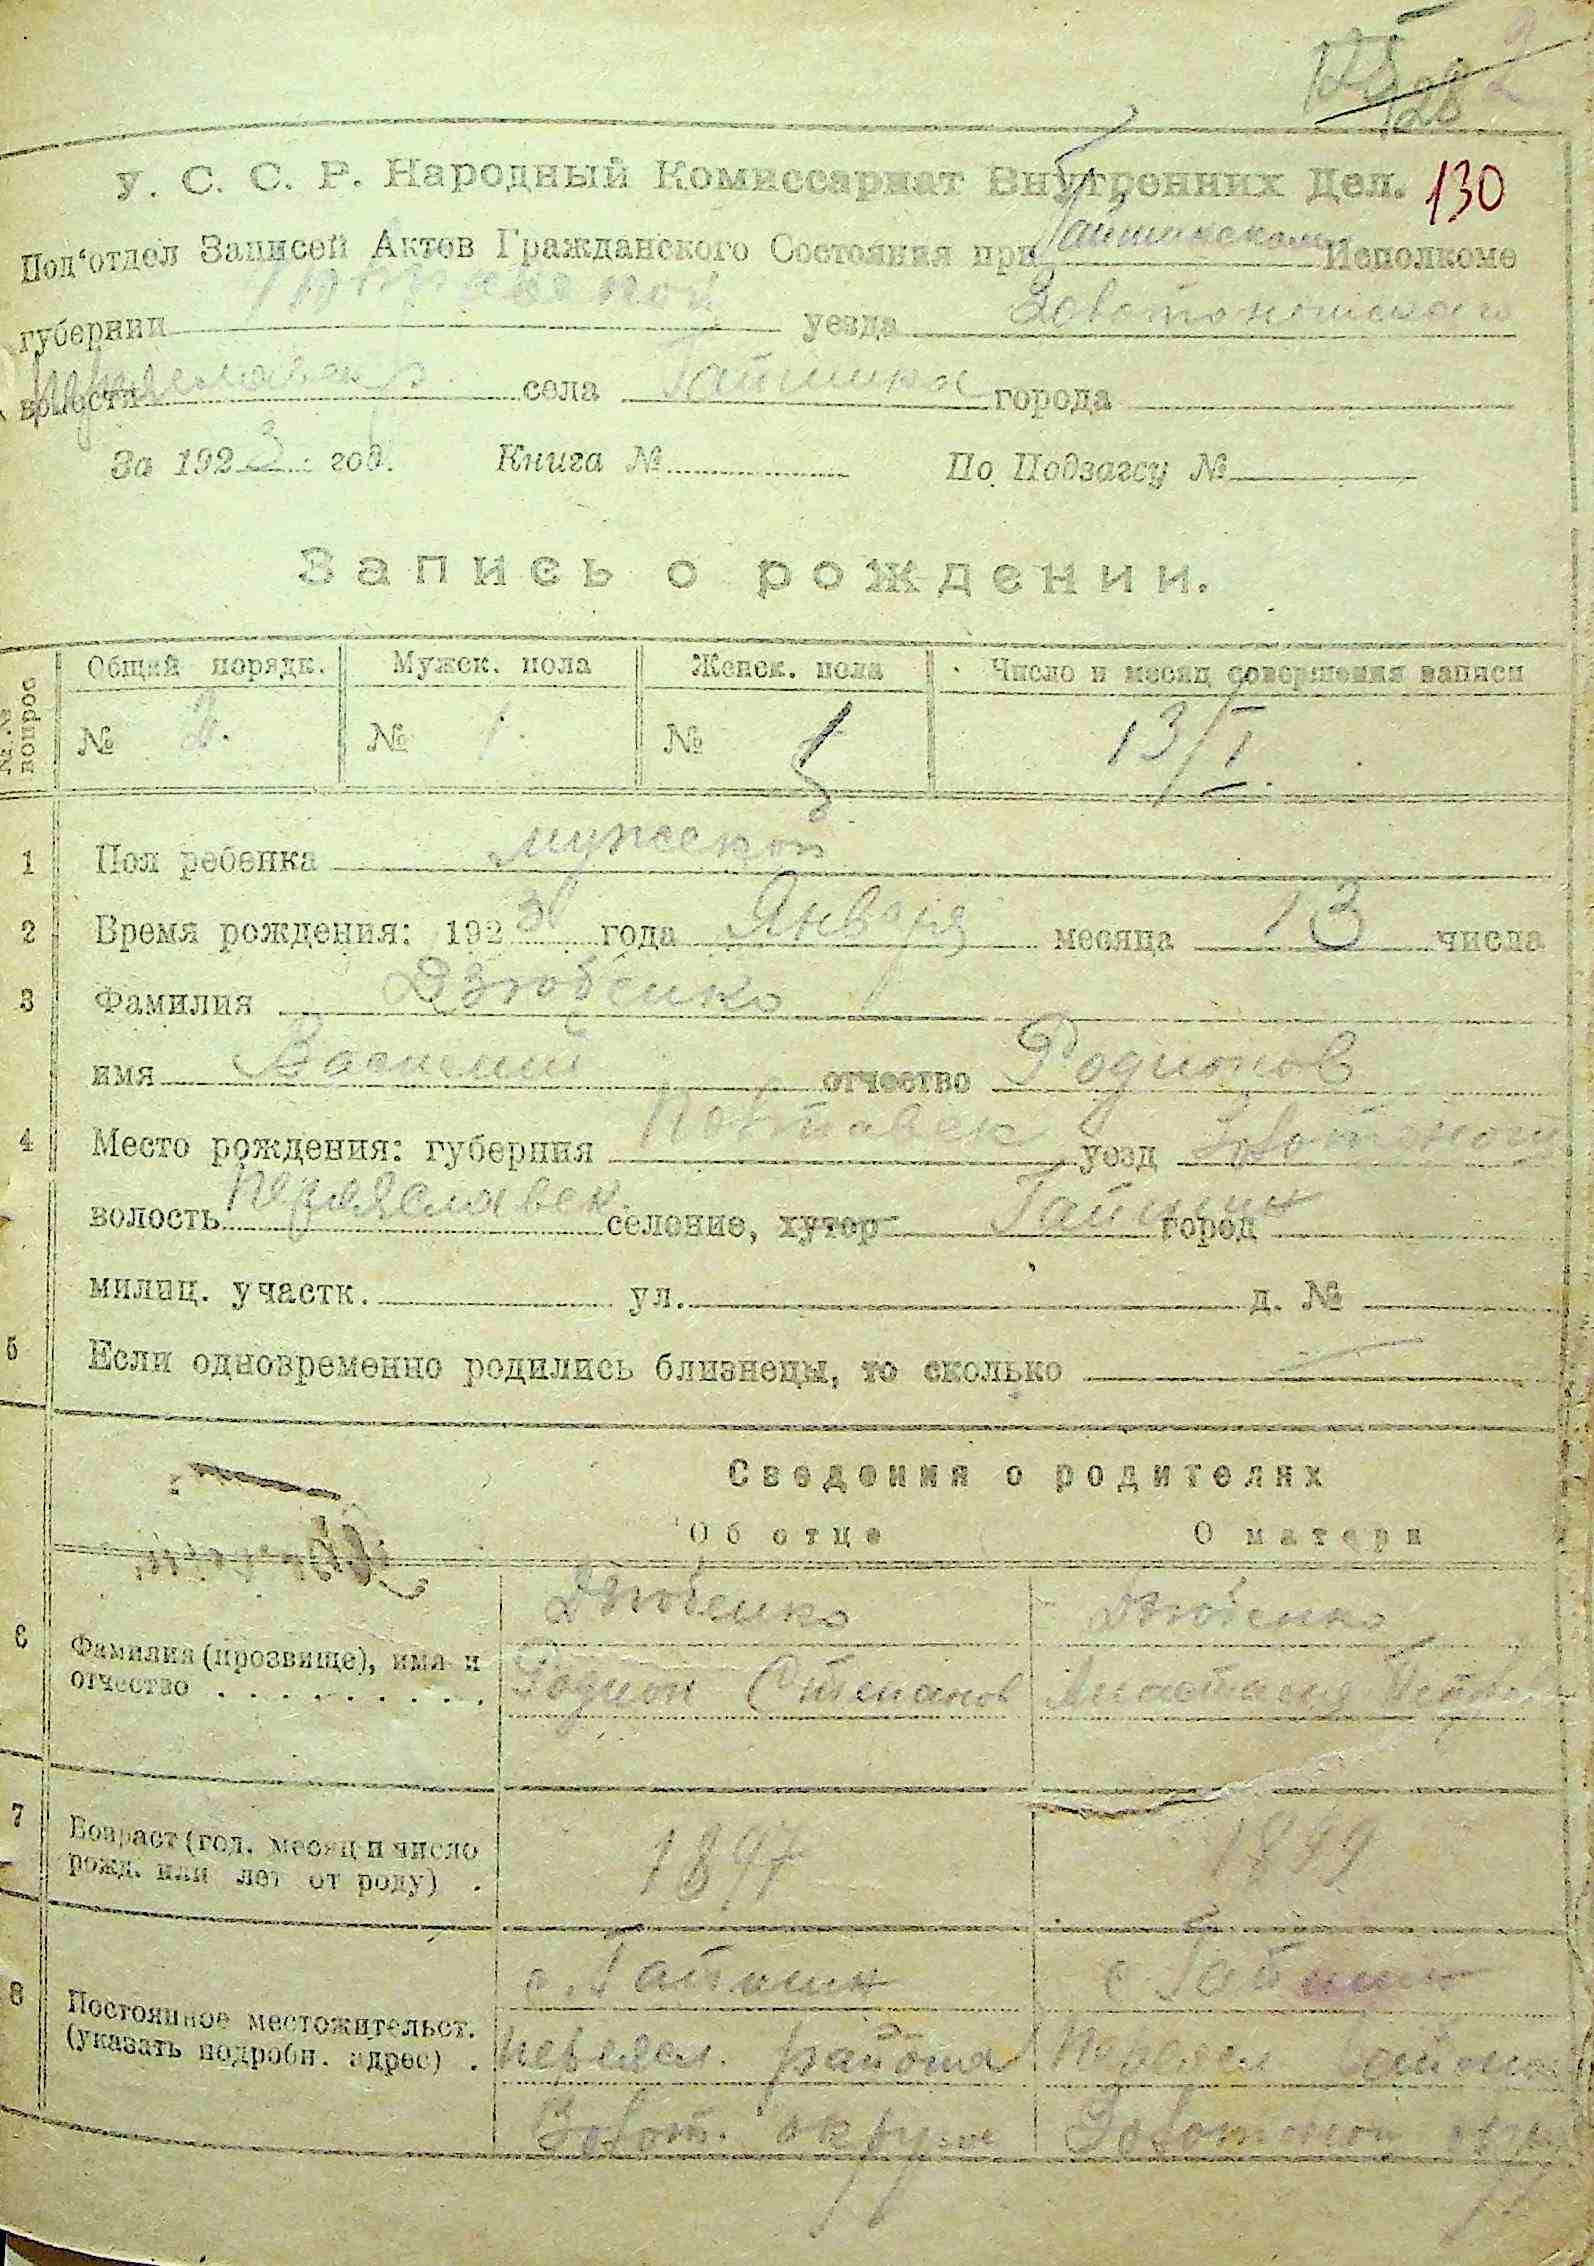 125 128 2
У. С. С. Р. Народный Комиссариат Внутренних Дел. 130
Под'отдел Записей Актов Гражданского Состояния при Гайшинском Исполкоме
губернии Полтавской уезда Золотоношского
волости Переяславск. села Гайшина города
За 1923 год. Книга № По Подзагсу №
Запись о рождении.
№ № вопрос
Общий порядк. Мужск. пола Женск. пола Число и месяц совершения записи
№ 2. № 1. № 13/I
1 Пол ребенка мужской
2 Время рождения: 1923 года Января месяца 13 числа
3 Фамилия Дзюбенко
имя Василий отчество Родионов
4 Место рождения: губерния Полтавск уезд Золотонош
волость Переяславск. селение, хутор Гайшин город
милиц. участк. ул. д. №
5 Если одновременно родились близнецы, то сколько —
Сведения о родителях
Об отце О матери
Дзюбенко Дзюбенко
6 Фамилия (прозвище), имя и отчество Родион Степанов Анастасия Петров
7 Возраст (год, месяц и число рожд. или лет от роду) 1897 1899
с. Гайшин с Гайшин
8 Постоянное местожительст. (указать подробн. адрес) Переясл. района Переясл района
Золот. округа Золотонош округ